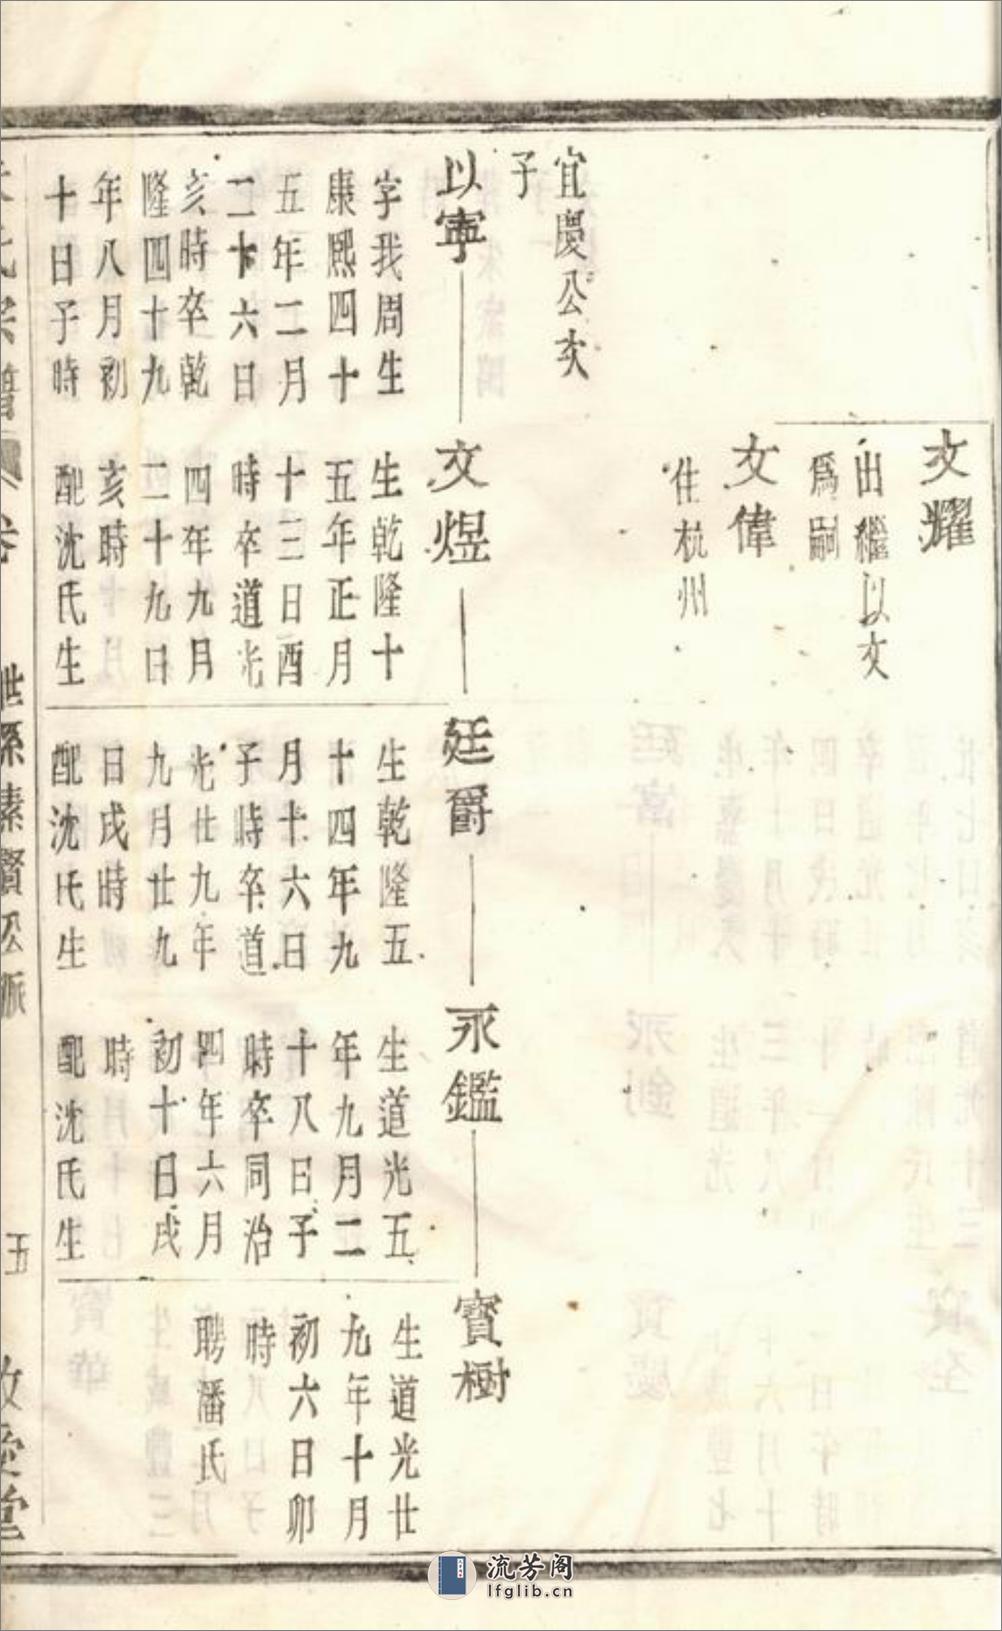 文耀
出繼以文
爲嗣
文偉
住杭州
宜慶公次
子
以寧
字我周生
康熙四十
五年二月
二十六日
亥時卒乾
隆四十九
年八月初
十日子時
文煜
生乾隆十
五年正月
十三日酉
時卒道光
四年九月
二十九日
亥時
配沈氏生
廷爵
生乾隆五
十四年九
月十六日
子時卒道
光廿九年
九月廿九
日戌時
配沈氏生
永鑑
生道光五
年九月二
十八日子
時卒同治
四年六月
初十日戌
時
配沈氏生
寶樹
生道光廿
九年十月
初六日卯
時
聘潘氏
氏宗譜 卷
世系素賢公派
五
敦愛堂
流芳阁
lfglib.cn